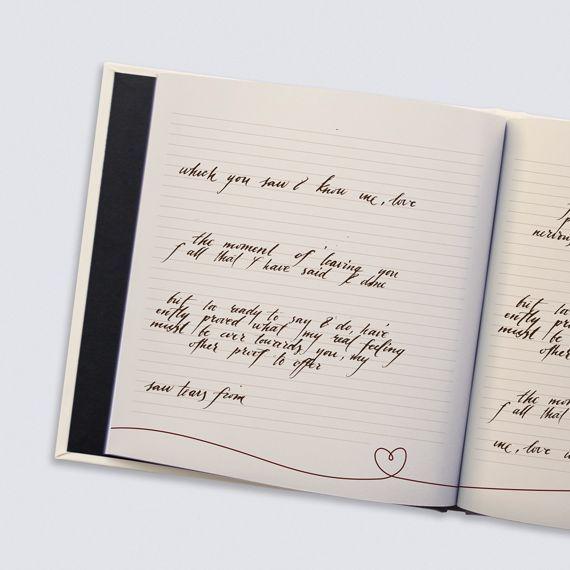 which you saw & know me, love
the moment of leaving you
f all that I have said & done
but la ready to say & do, have
ently proved what my real feeling
must be ever towards you, my
other proof to offer
saw tears from
but la
ently pro
must be
other
the mo
f all that
me, love